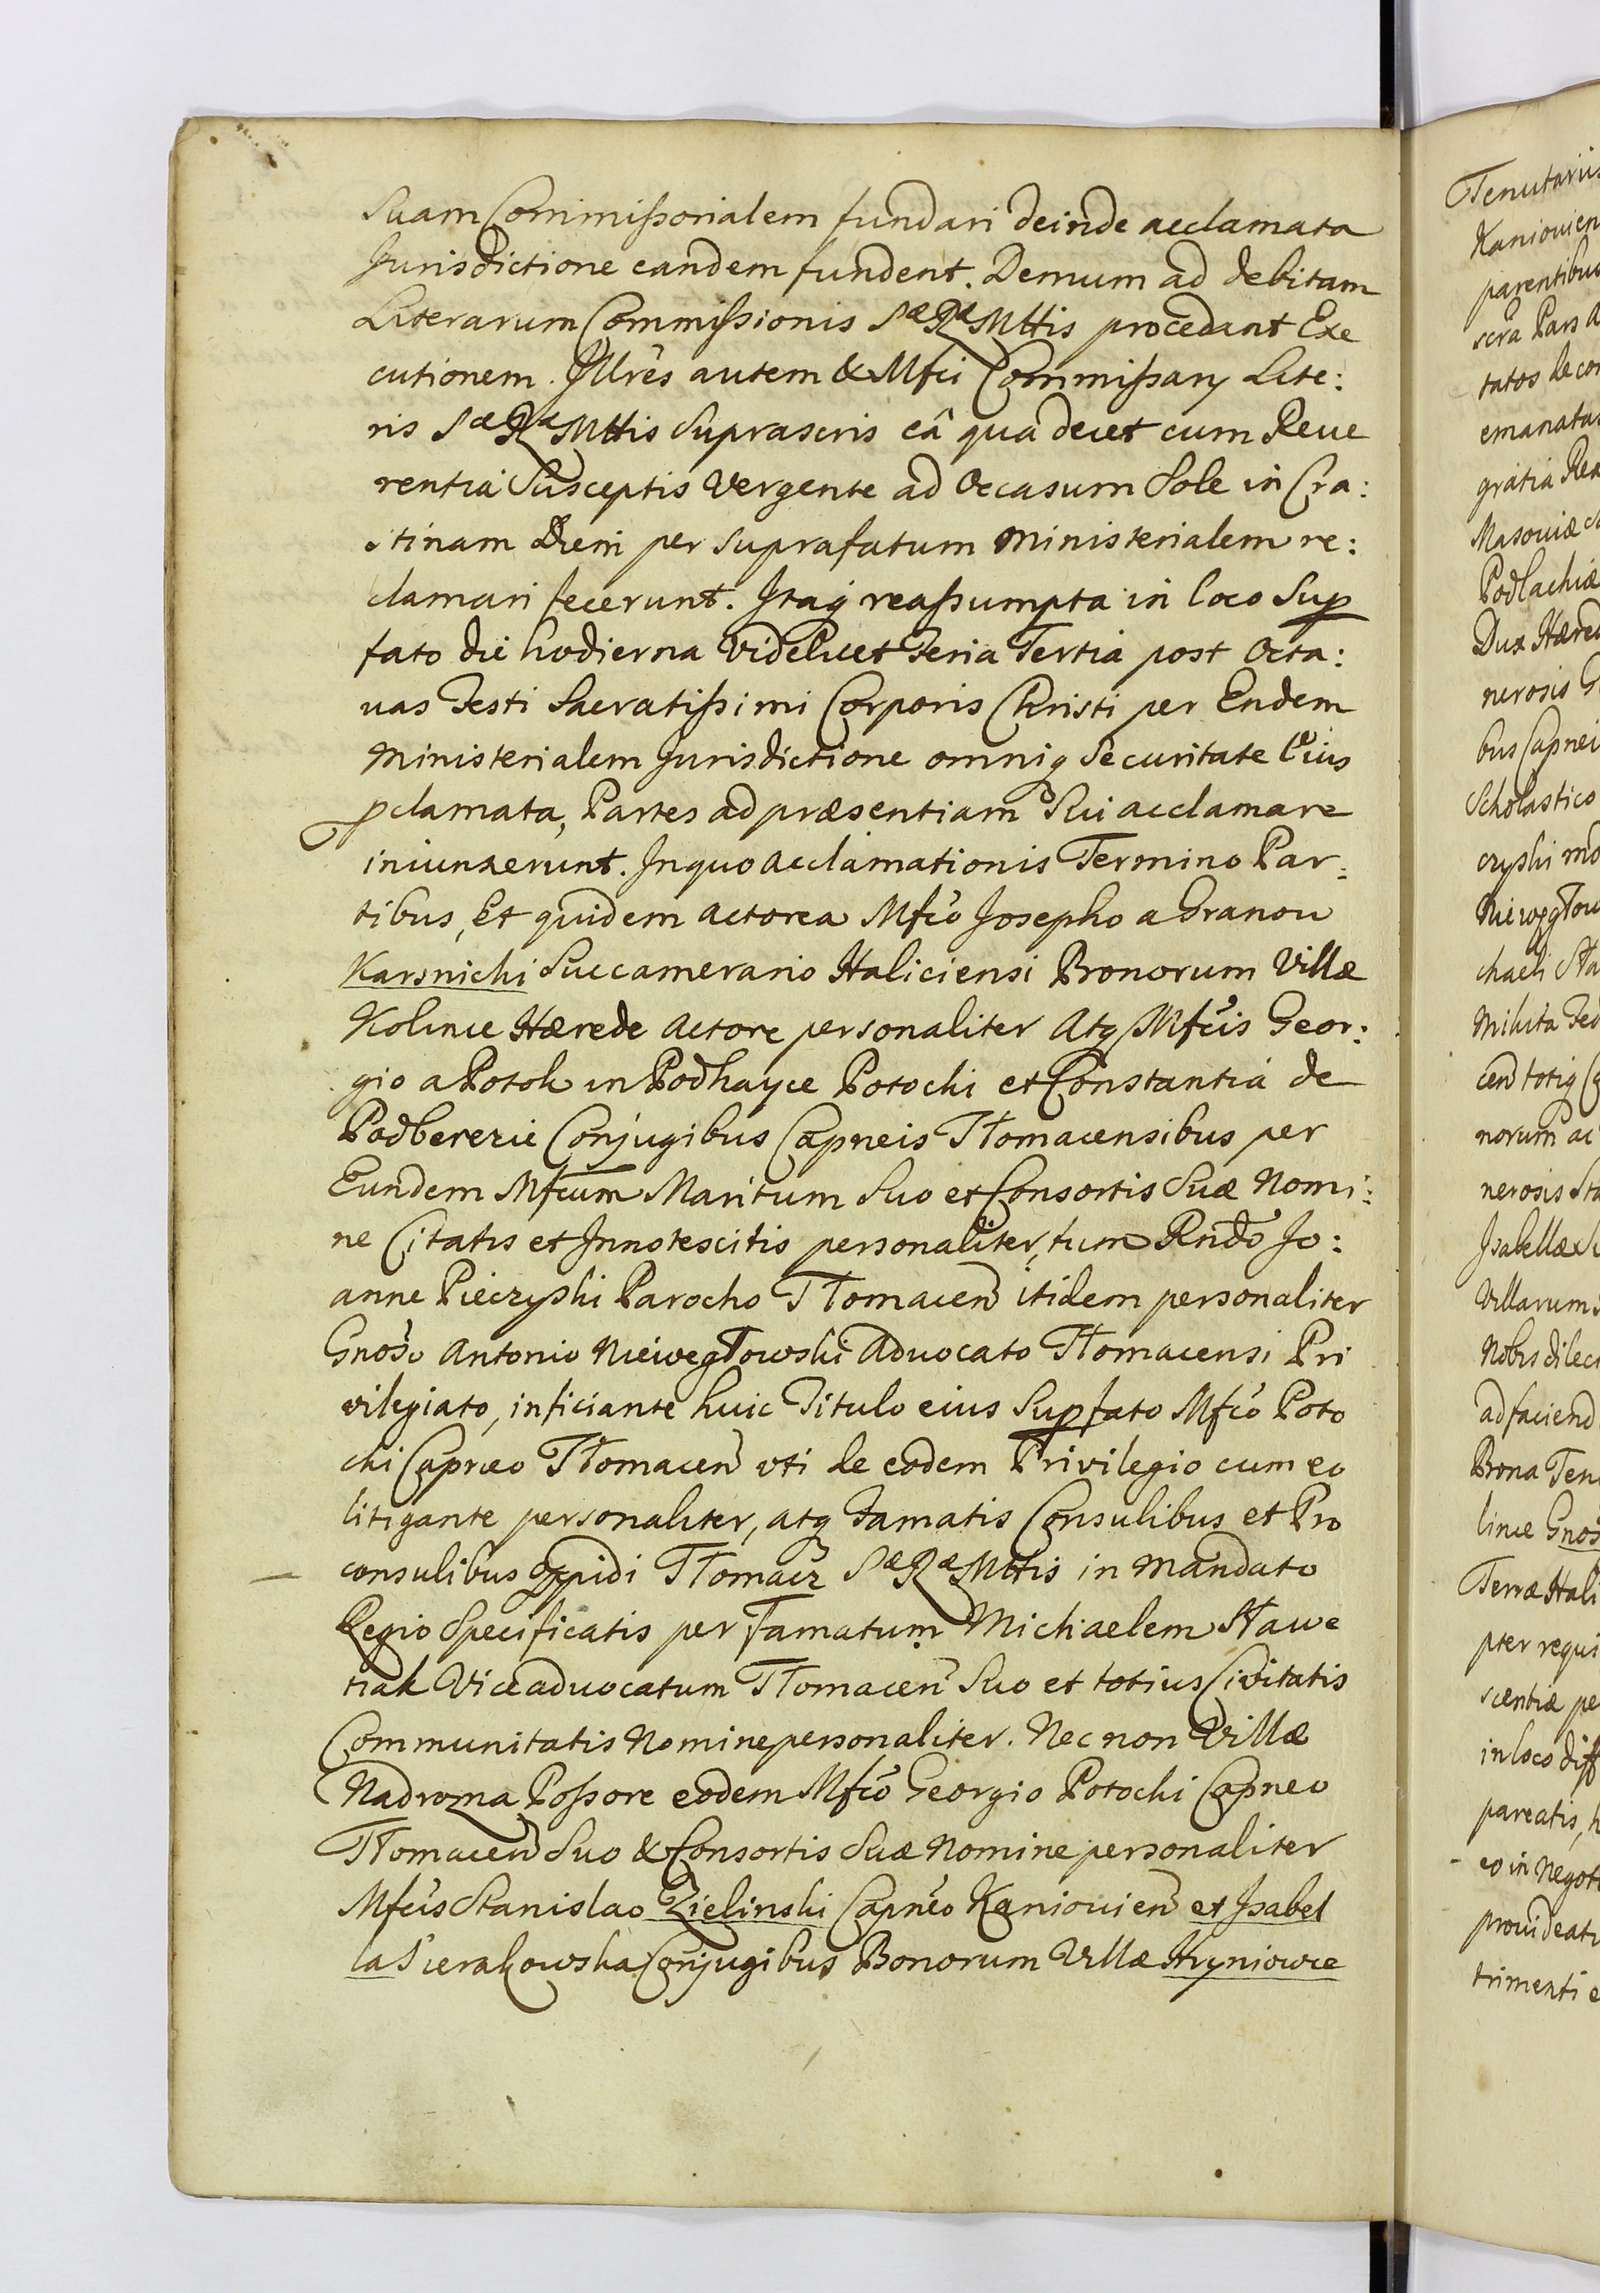 Suam Commissorialem fundari deinde acclamata
Jurisdictione eandem fundent. Demum ad debitam
Literarum Commissionis Sæ Ræ Mttis procedant Exe
cutionem. Jllrēs autem & Mfci Commissarÿ Lite:
ris Sæ Ræ Mttis Suprascris eâ quâ decet cum Reue
rentia Susceptis Vergente ad Occasum Sole in Cra:
stinam Diem per suprafatum Ministerialem re:
clamari fecerunt. Jtaq reassumpta in loco Sup
fato die hodierna Videlicet Feria Tertia post Octa:
uas Festi Sacratissimi Corporis Christi per Eundem
Ministerialem Jurisdictione omniq Securitate Eius
pclamata, Partes ad præsentiam Sui acclamare
iniunxerunt. Jn quo acclamationis Termino Par:
tibus, Et quidem actorea Mfcō Josepho a Granow
Karsnicki Succamerario Haliciensi Bonorum Villæ
Kolince Hærede Actore personaliter Atq Mfcis Geor:
gio a Potok in Podhayce Potocki et Constantia de
Podberezie Conjugibus Capneis Tłomacensibus per
Eundem Mfcum Maritum Suo et Consortis Suæ Nomi:
ne Citatis et Jnnotescitis personaliter, tum Rndō Jo:
anne Pieczyski Parocho Tłomacen itidem personaliter
Gnōso Antonio Niewęgłowski Advocato Tłomacensi Pri
vilegiato, inficiante huic Titulo eius Supfato Mfcō Poto
cki Capneo Tłomacen uti de eodem Privilegio cum eo
litigante personaliter, atq Famatis Consulibus et Pro
consulibus Oppidi Tłomacz Sæ Ræ Mttis in Mandato
Regio Specificatis per Famatum Michaelem Stawe
niak Viceadvocatum Tłomacen Suo et totius Civitatis
Communitatis Nomine personaliter. Nec non Villæ
Nadrozna Possore eodem Mfcō Georgio Potocki Capneo
Tłomacen Suo & Consortis Suæ Nomine personaliter
Mfcis Stanislao Zielinski Capneo Kaniouien et Jsabel
la Sierakowska Conjugibus Bonorum Villæ Hryniowce
Tenutariis
Kaniouien
parentibus
emanatas
gratia Rex
Masouiæ
Podlachiæ
Dux Hæred
nerosis G
bus Capnei
Scholastico
norum ac
nerosis Sta
Villarum
Nobis dilec
ad faciend
Bona Ten
Terræ Hali
pter requi
scentiæ pe
in loco diff
pareatis, h
eo in Negoti
prouideatu
trimenti e